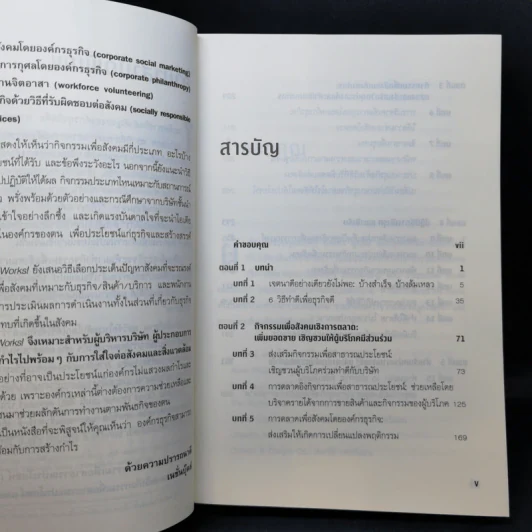 ังคมโดยองค์กรธุรกิจ (corporate social marketing)
การกุศลโดยองค์กรธุรกิจ (corporate philanthropy)
านจิตอาสา (workforce volunteering)
กิจด้วยวิธีที่รับผิดชอบต่อสังคม (socially responsible
ices)
สดงให้เห็นว่ากิจกรรมเพื่อสังคมมีกี่ประเภท อะไรบ้าง
ยชน์ที่ได้รับ และข้อพึงระวังอะไร นอกจากนี้ยังแนะนำวิธี
ปฏิบัติให้ได้ผล กิจกรรมประเภทไหนเหมาะกับสถานการณ์
พรั่งพร้อมด้วยตัวอย่างและกรณีศึกษาจากบริษัทชั้นนำ
ข้าใจอย่างลึกซึ้ง และเกิดแรงบันดาลใจที่จะนำไอเดีย
นองค์กรของตน เพื่อประโยชน์แก่ธุรกิจและสร้างสรรค์
Works! ยังเสนอวิธีเลือกประเด็นปัญหาสังคมที่จะรณรงค์
ที่เหมาะกับธุรกิจ/สินค้า/บริการ และพนักงาน
การประเมินผลการดำเนินงานทั้งในส่วนที่เกี่ยวกับธุรกิจ
ทบที่เกิดขึ้นในสังคม
Works! จึงเหมาะสำหรับผู้บริหารบริษัท ผู้ประกอบการ
กำไรไปพร้อมๆ กับการใส่ใจต่อสังคมและสิ่งแวดล้อม
อย่างที่อาจเป็นประโยชน์แก่องค์กรไม่แสวงผลกำไรและ
ด้วย เพราะองค์กรเหล่านี้ต่างต้องการความช่วยเหลือและ
นมาช่วยผลักดันการทำงานตามพันธกิจของตน
เป็นหนังสือที่จะพิสูจน์ให้คุณเห็นว่า องค์กรธุรกิจสามารถ
ร้อมกับการสร้างกำไร
ด้วยความปรารถนาดี
เนชั่นบุ๊คส์
สารบัญ
คำขอบคุณ vii
ตอนที่ 1 บทนำ 1
บทที่ 1 เจตนาดีอย่างเดียวยังไม่พอ: บ้างสำเร็จ บ้างล้มเหลว 5
บทที่ 2 6 วิธีทำดีเพื่อธุรกิจดี 35
ตอนที่ 2 กิจกรรมเพื่อสังคมเชิงการตลาด:
เพิ่มยอดขาย เชิญชวนให้ผู้บริโภคมีส่วนร่วม 71
บทที่ 3 ส่งเสริมกิจกรรมเพื่อสาธารณประโยชน์:
เชิญชวนผู้บริโภคร่วมทำดีกับบริษัท 73
บทที่ 4 การตลาดอิงกิจกรรมเพื่อสาธารณประโยชน์: ช่วยเหลือโดย
บริจาครายได้จากการขายสินค้าและกิจกรรมของผู้บริโภค 125
บทที่ 5 การตลาดเพื่อสังคมโดยองค์กรธุรกิจ:
ส่งเสริมให้เกิดการเปลี่ยนแปลงพฤติกรรม 169
v